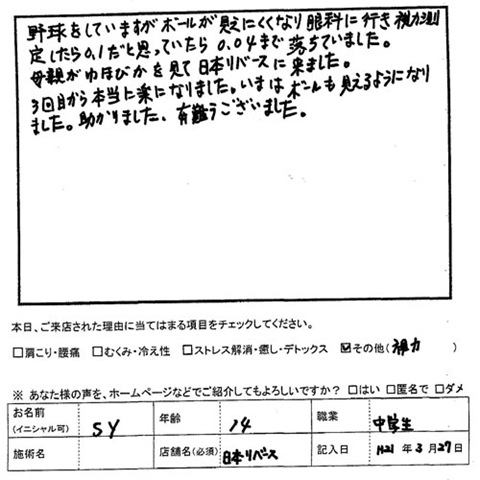 野球をしていますがボールが見えにくくなり眼科に行き視力測
定したら0,1だと思っていたら0.04まで落ちていました。
母親がゆほびかを見て日本リバースに来ました。
3回目から本当に楽になりました。いまはボールも見えるようになり
ました。助かりました、有難うございました。
本日、ご来店された理由に当てはまる項目をチェックしてください。
□肩こり・腰痛 □むくみ・冷え性 □ストレス解消・癒し・デトックス ☑その他(視力 )
※ あなた様の声を、ホームページなどでご紹介してもよろしいですか? □はい □匿名で □ダメ
お名前 (イニシャル可) SY 年齢 14 職業 中学生
施術名 店舗名(必須) 日本リバース 記入日 H21 年 3 月 27 日